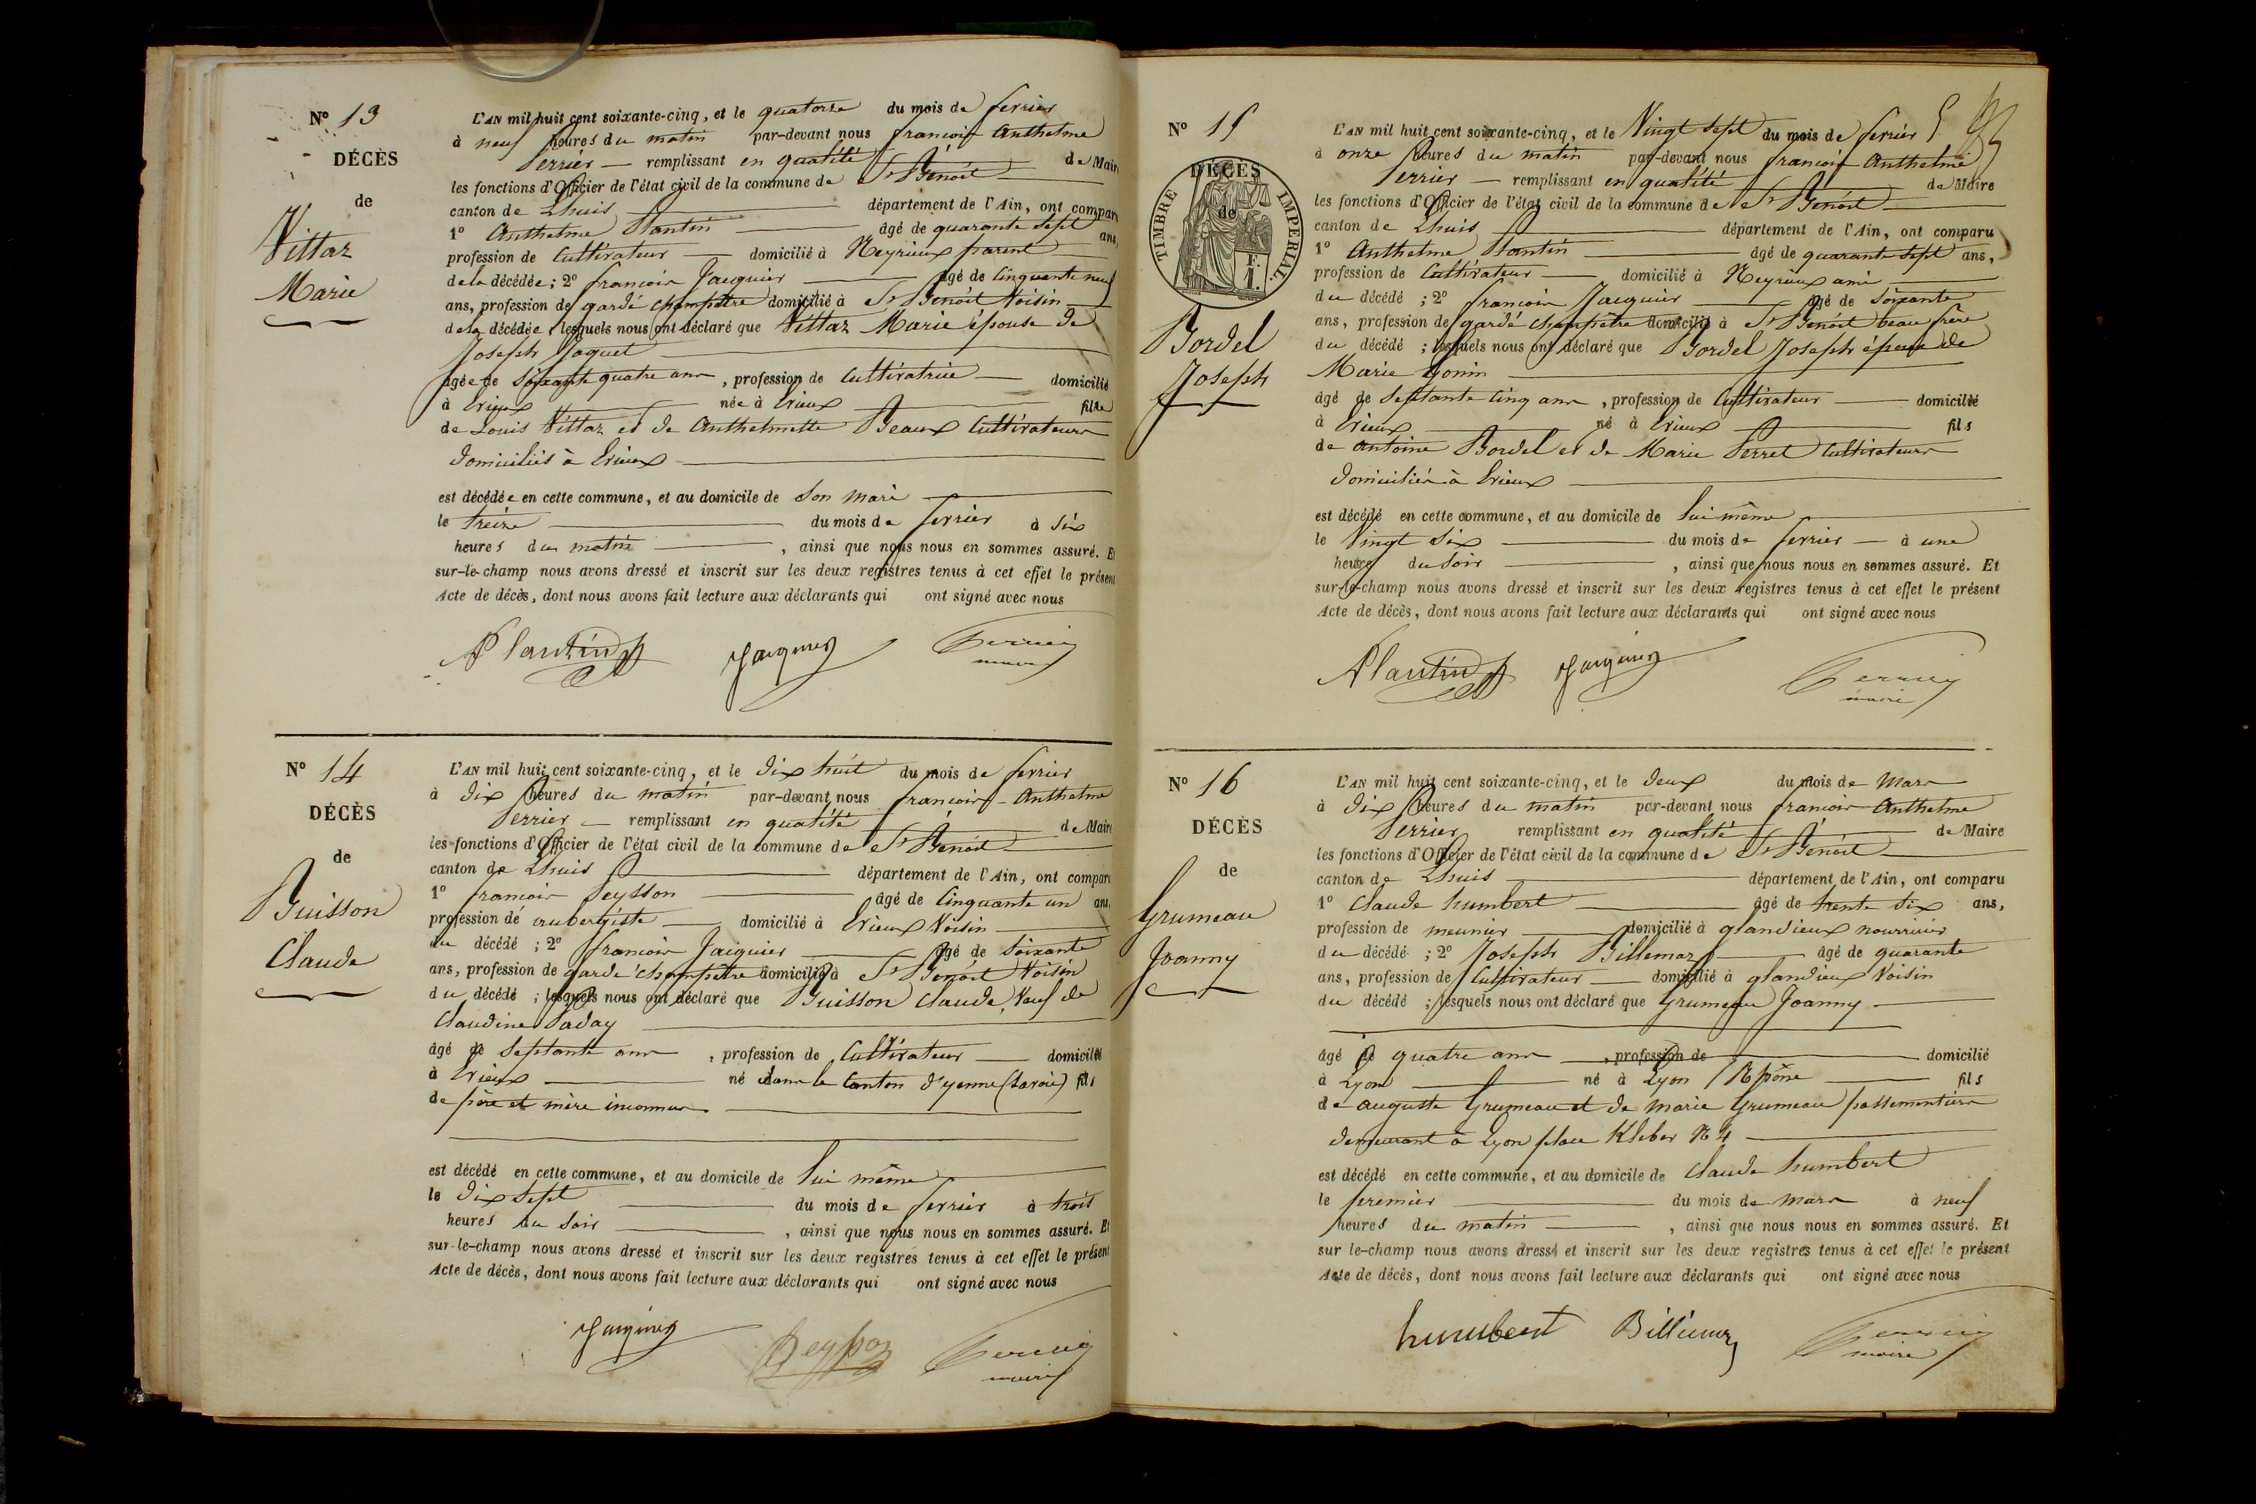 N° 13
DÉCÈS
de
Vittaz
Marie
L'AN mil huit cent soixante-cinq, et le quatorze du mois de ferrier
à neuf heures du matin par-devant nous francois Anthelme
Perrier — remplissant en qualité de Maire
les fonctions d'Officier de l'état civil de la commune de St Benoit
canton de Lhuis département de l'Ain, ont comparu
1° Anthelme Plantin âgé de quarante sept ans,
profession de Cultivateur domicilié à Neyrieux parent
de la décédée ; 2° francois Jacquier âgé de Cinquante neuf
ans, profession de garde champêtre domicilié à St Benoit Voisin
de la décédée lesquels nous ont déclaré que Vittaz Marie épouse de
Joseph Joguet
âgée de Soixante quatre ans, profession de Cultivatrice domicilié
à Erieux née à Erieux fille
de Louis Vittaz et de Anthelmette Beaux Cultivateurs
domiciliés à Erieux
est décédée en cette commune, et au domicile de Son mari
le treize du mois de ferrier à Six
heures du matin, ainsi que nous nous en sommes assuré. Et
sur-le-champ nous avons dressé et inscrit sur les deux registres tenus à cet effet le présent
Acte de décès, dont nous avons fait lecture aux déclarants qui ont signé avec nous
Plantin Jacquier Perrier
maire
N° 14
DÉCÈS
de
Buisson
Claude
L'AN mil huit cent soixante-cinq, et le dix huit du mois de ferrier
à dix heures du matin par-devant nous francois - Anthelme
Perrier — remplissant en qualité de Maire
les fonctions d'Officier de l'état civil de la commune de St Benoit
canton de Lhuis département de l'Ain, ont comparu
1° francois Peysson âgé de Cinquante un ans,
profession de aubergiste domicilié à Erieux Voisin
du décédé ; 2° francois Jacquier âgé de Soixante
ans, profession de garde champêtre domicilié à St Benoit Voisin
du décédé ; lesquels nous ont déclaré que Buisson Claude, Veuf de
Claudine Paday
âgé de Septante ans, profession de Cultivateur domicilié
à Erieux né dans le Canton d'yenne (Savoie) fils
de père et mère inconnus
est décédé en cette commune, et au domicile de Lui même
le dix sept du mois de ferrier à trois
heures du Soir, ainsi que nous nous en sommes assuré. Et
sur-le-champ nous avons dressé et inscrit sur les deux registres tenus à cet effet le présent
Acte de décès, dont nous avons fait lecture aux déclarants qui ont signé avec nous
Jacquier Peysson Perrier
maire
N° 15
DÉCÈS
de
TIMBRE IMPERIAL.
Bordel
Joseph
L'AN mil huit cent soixante-cinq, et le Vingt Sept du mois de ferrier
à onze heures du matin par-devant nous francois Anthelme
Perrier — remplissant en qualité de Maire
les fonctions d'Officier de l'état civil de la commune de St Benoit
canton de Lhuis département de l'Ain, ont comparu
1° Anthelme Plantin âgé de quarante Sept ans,
profession de Cultivateur domicilié à Neyrieux ami
du décédé ; 2° francois Jacquier âgé de Soixante
ans, profession de garde champêtre domicilié à St Benoit beau frère
du décédé ; lesquels nous ont déclaré que Bordel Joseph époux de
Marie Gonin
âgé de Septante Cinq ans, profession de Cultivateur domicilié
à Erieux né à Erieux fils
de Antoine Bordel et de Marie Perret Cultivateurs
domiciliés à Erieux
est décédé en cette commune, et au domicile de Lui même
le Vingt Six du mois de ferrier — à une
heure du Soir, ainsi que nous nous en sommes assuré. Et
sur-le-champ nous avons dressé et inscrit sur les deux registres tenus à cet effet le présent
Acte de décès, dont nous avons fait lecture aux déclarants qui ont signé avec nous
Plantin Jacquier Perrier
maire
N° 16
DÉCÈS
de
Grumeau
Joanny
L'AN mil huit cent soixante-cinq, et le deux du mois de Mars
à dix heures du matin par-devant nous francois Anthelme
Perrier remplissant en qualité de Maire
les fonctions d'Officier de l'état civil de la commune de St Benoit
canton de Lhuis département de l'Ain, ont comparu
1° Claude humbert âgé de trente Six ans,
profession de meunier domicilié à glandieux nourricier
du décédé ; 2° Joseph Billemaz âgé de quarante
ans, profession de Cultivateur domicilié à glandieux Voisin
du décédé ; lesquels nous ont déclaré que Grumeau Joanny
âgé de quatre ans, profession de domicilié
à Lyon né à Lyon / Rhône fils
de auguste Grumeau et de marie Grumeau passementiers
demeurant à Lyon place Kleber N 4
est décédé en cette commune, et au domicile de Claude humbert
le premier du mois de mars à neuf
heures du matin, ainsi que nous nous en sommes assuré. Et
sur le-champ nous avons dressé et inscrit sur les deux registres tenus à cet effet le présent
Acte de décès, dont nous avons fait lecture aux déclarants qui ont signé avec nous
humbert Billemaz Perrier
maire